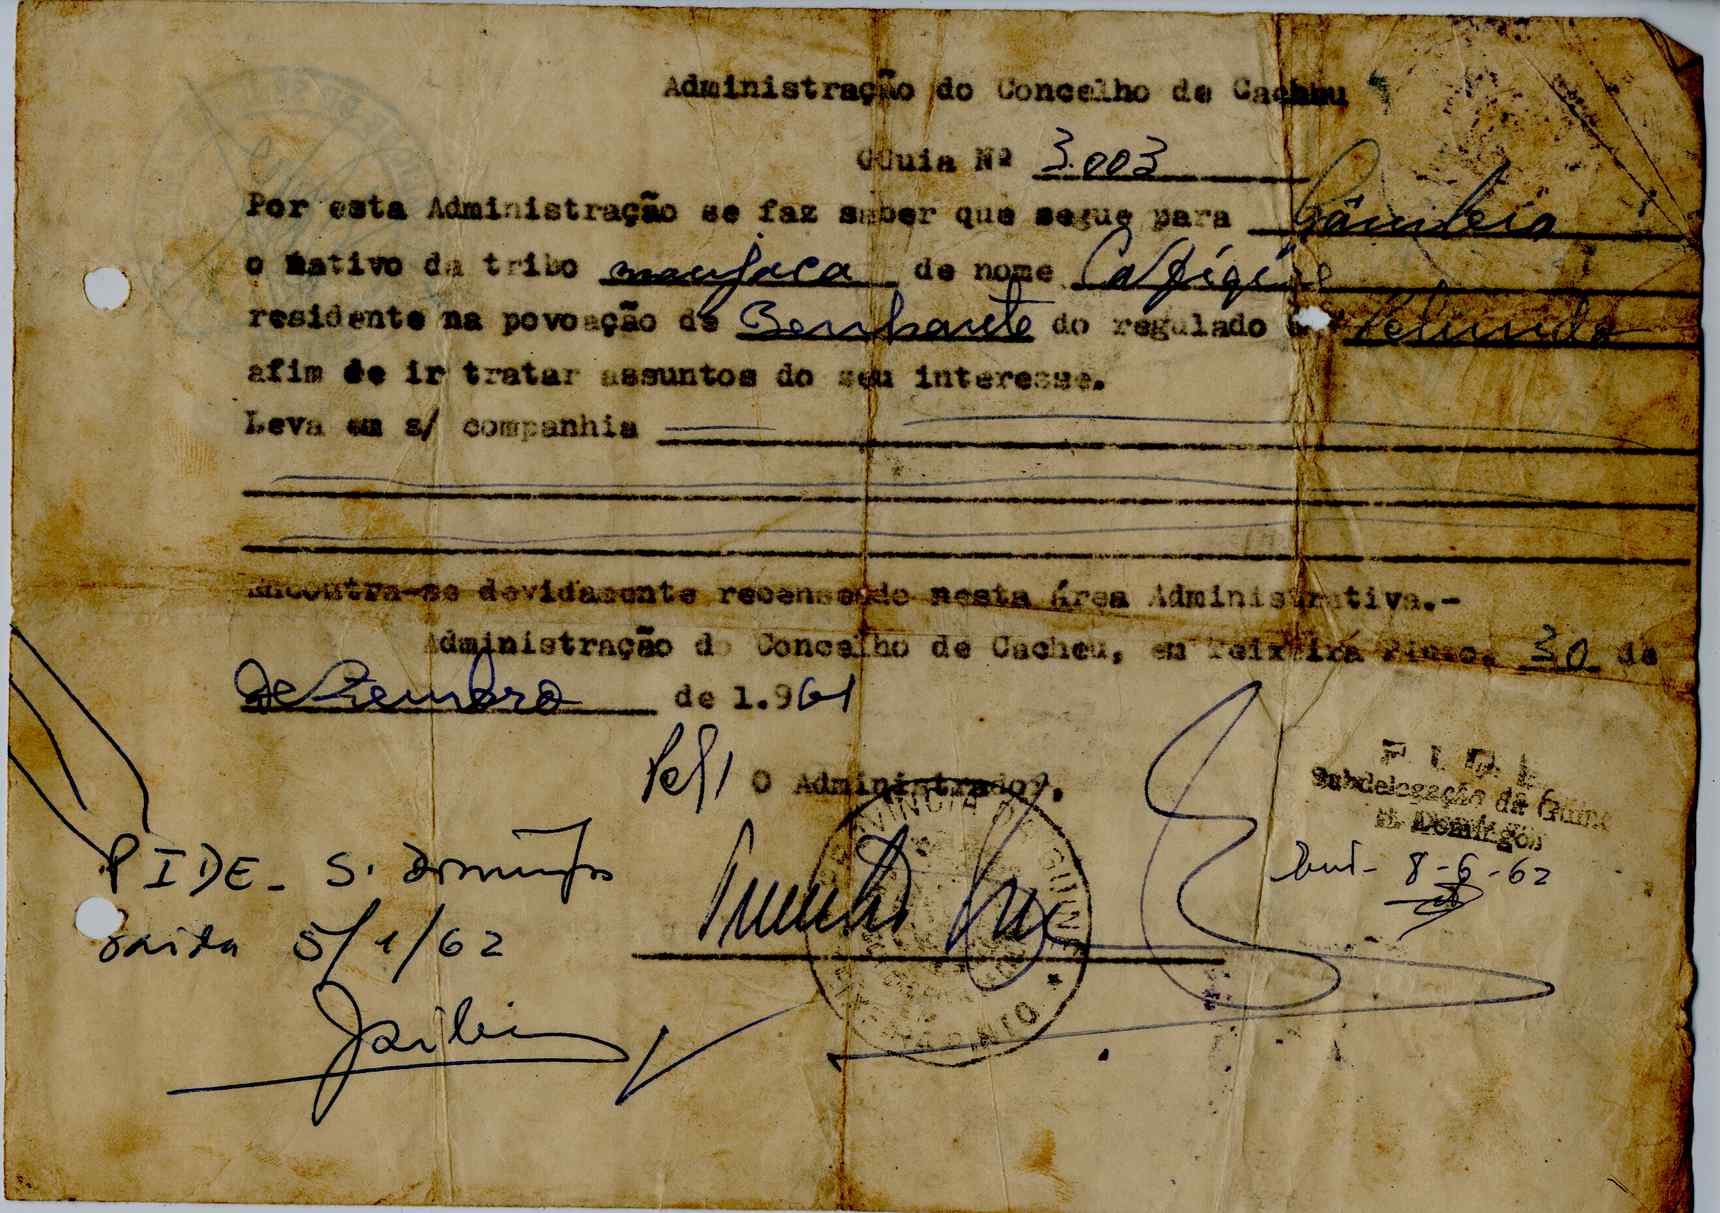 Administração do Concelho de Cacheu
GGuia Nº 3.003
Por esta Administração se faz saber que segue para Gâmbia
o nativo da tribo manjaca de nome
residente na povoação de Benhante do regulado
afim de ir tratar assuntos do seu interesse.
Leva em s/ companhia
Encontra-se devidamente recenseado nesta área Administrativa.-
Administração do Concelho de Cacheu, em Teixeira Pinto, 30 de
Dezembro de 1.961
O Administrador,
PROVINCIA DA GUINÉ
P. I. D. E.
Subdelegação da Guiné
S. Domingos
8-6-62
PIDE - S. Domingos
Saida 5/1/62